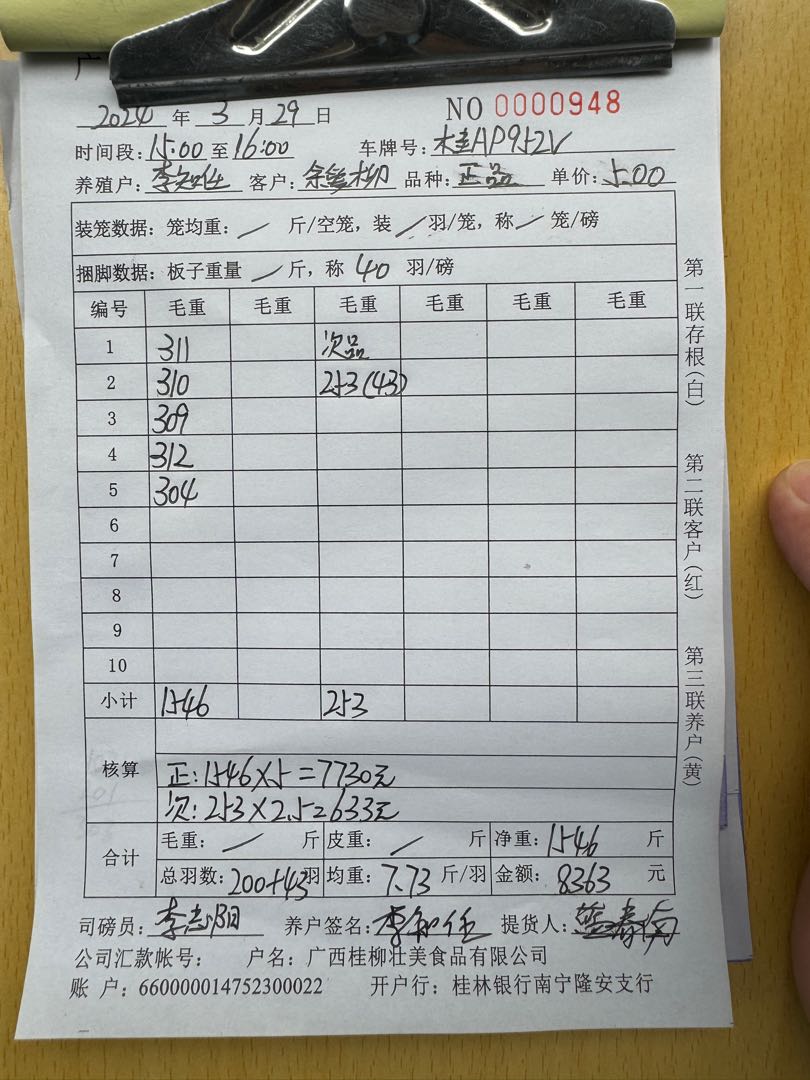 2024 年 3 月 29 日 NO 0000948
时间段: 15:00 至 16:00 车牌号: 桂AP952V
养殖户: 李知任 客户: 品种: 正品 单价: 5.00
装笼数据: 笼均重: / 斤/空笼, 装 / 羽/笼, 称 / 笼/磅
捆脚数据: 板子重量 / 斤, 称 40 羽/磅
编号 毛重 毛重 毛重 毛重 毛重 毛重
1 311 次品
2 310 253(43)
3 309
4 312
5 304
6
7
8
9
10
小计 1546 253
核算
正: 1546×5=7730元
次: 253×2.5=633元
合计
毛重: / 斤 皮重: / 斤 净重: 1546 斤
总羽数: 200+43 羽 均重: 7.73 斤/羽 金额: 8363 元
司磅员: 李志阳 养户签名: 李知任 提货人:
公司汇款帐号: 户名: 广西桂柳壮美食品有限公司
账 户: 660000014752300022 开户行: 桂林银行南宁隆安支行
第一联存根(白) 第二联客户(红) 第三联养户(黄)